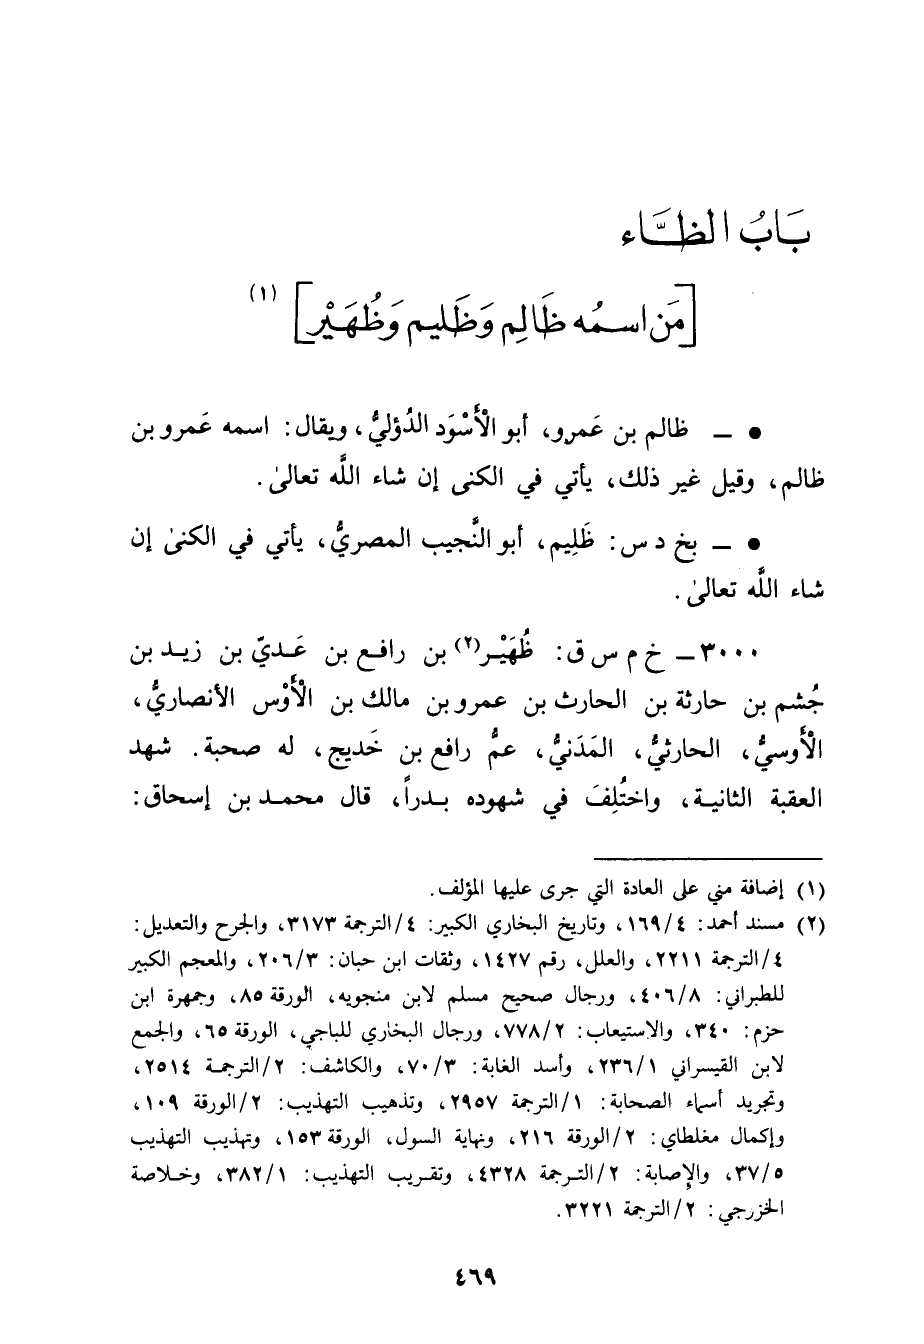 بَابُ الظَّاء
[مَن اسمُه ظَالِم وَظَليم وَظُهَيْر] (١)
● ـ ظالم بن عَمرو، أبو الأَسْوَد الدُؤليُّ، ويقال: اسمه عَمرو بن
ظالم، وقيل غير ذلك، يأتي في الكنى إن شاء اللَّه تعالىٰ.
● ـ بخ د س: ظَلِيم، أبو النَّجيب المصريُّ، يأتي في الكنىٰ إن
شاء اللَّه تعالىٰ.
٣٠٠٠ ـ خ م س ق: ظُهَيْر(٢) بن رافع بن عَديّ بن زيد بن
جُشم بن حارثة بن الحارث بن عمرو بن مالك بن الأَوْس الأنصاريُّ،
الأَوسيُّ، الحارثيُّ، المَدَنيُّ، عمُّ رافع بن خَديج، له صحبة. شهد
العقبة الثانية، واختُلِفَ في شهوده بدراً، قال محمد بن إسحاق:
(١) إضافة مني على العادة التي جرى عليها المؤلف.
(٢) مسند أحمد: ٤/١٦٩، وتاريخ البخاري الكبير: ٤/الترجمة ٣١٧٣، والجرح والتعديل:
٤/الترجمة ٢٢١١، والعلل، رقم ١٤٢٧، وثقات ابن حبان: ٣/٢٠٦، والمعجم الكبير
للطبراني: ٨/٤٠٦، ورجال صحيح مسلم لابن منجويه، الورقة ٨٥، وجمهرة ابن
حزم: ٣٤٠، والاستيعاب: ٢/٧٧٨، ورجال البخاري للباجي، الورقة ٦٥، والجمع
لابن القيسراني ١/٢٣٦، وأسد الغابة: ٣/٧٠، والكاشف: ٢/الترجمة ٢٥١٤،
وتجريد أسماء الصحابة: ١/الترجمة ٢٩٥٧، وتذهيب التهذيب: ٢/الورقة ١٠٩،
وإكمال مغلطاي: ٢/الورقة ٢١٦، ونهاية السول، الورقة ١٥٣، وتهذيب التهذيب
٥/٣٧، والإصابة: ٢/الترجمة ٤٣٢٨، وتقريب التهذيب: ١/٣٨٢، وخلاصة
الخزرجي: ٢/الترجمة ٣٢٢١.
٤٦٩